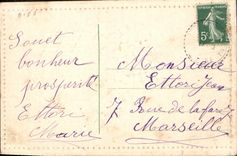 Souet
bonheur
prosperité
Ettori
Marie
Monsieur
Ettori Jean
7 Rue de la fare 7
Marseille
5c